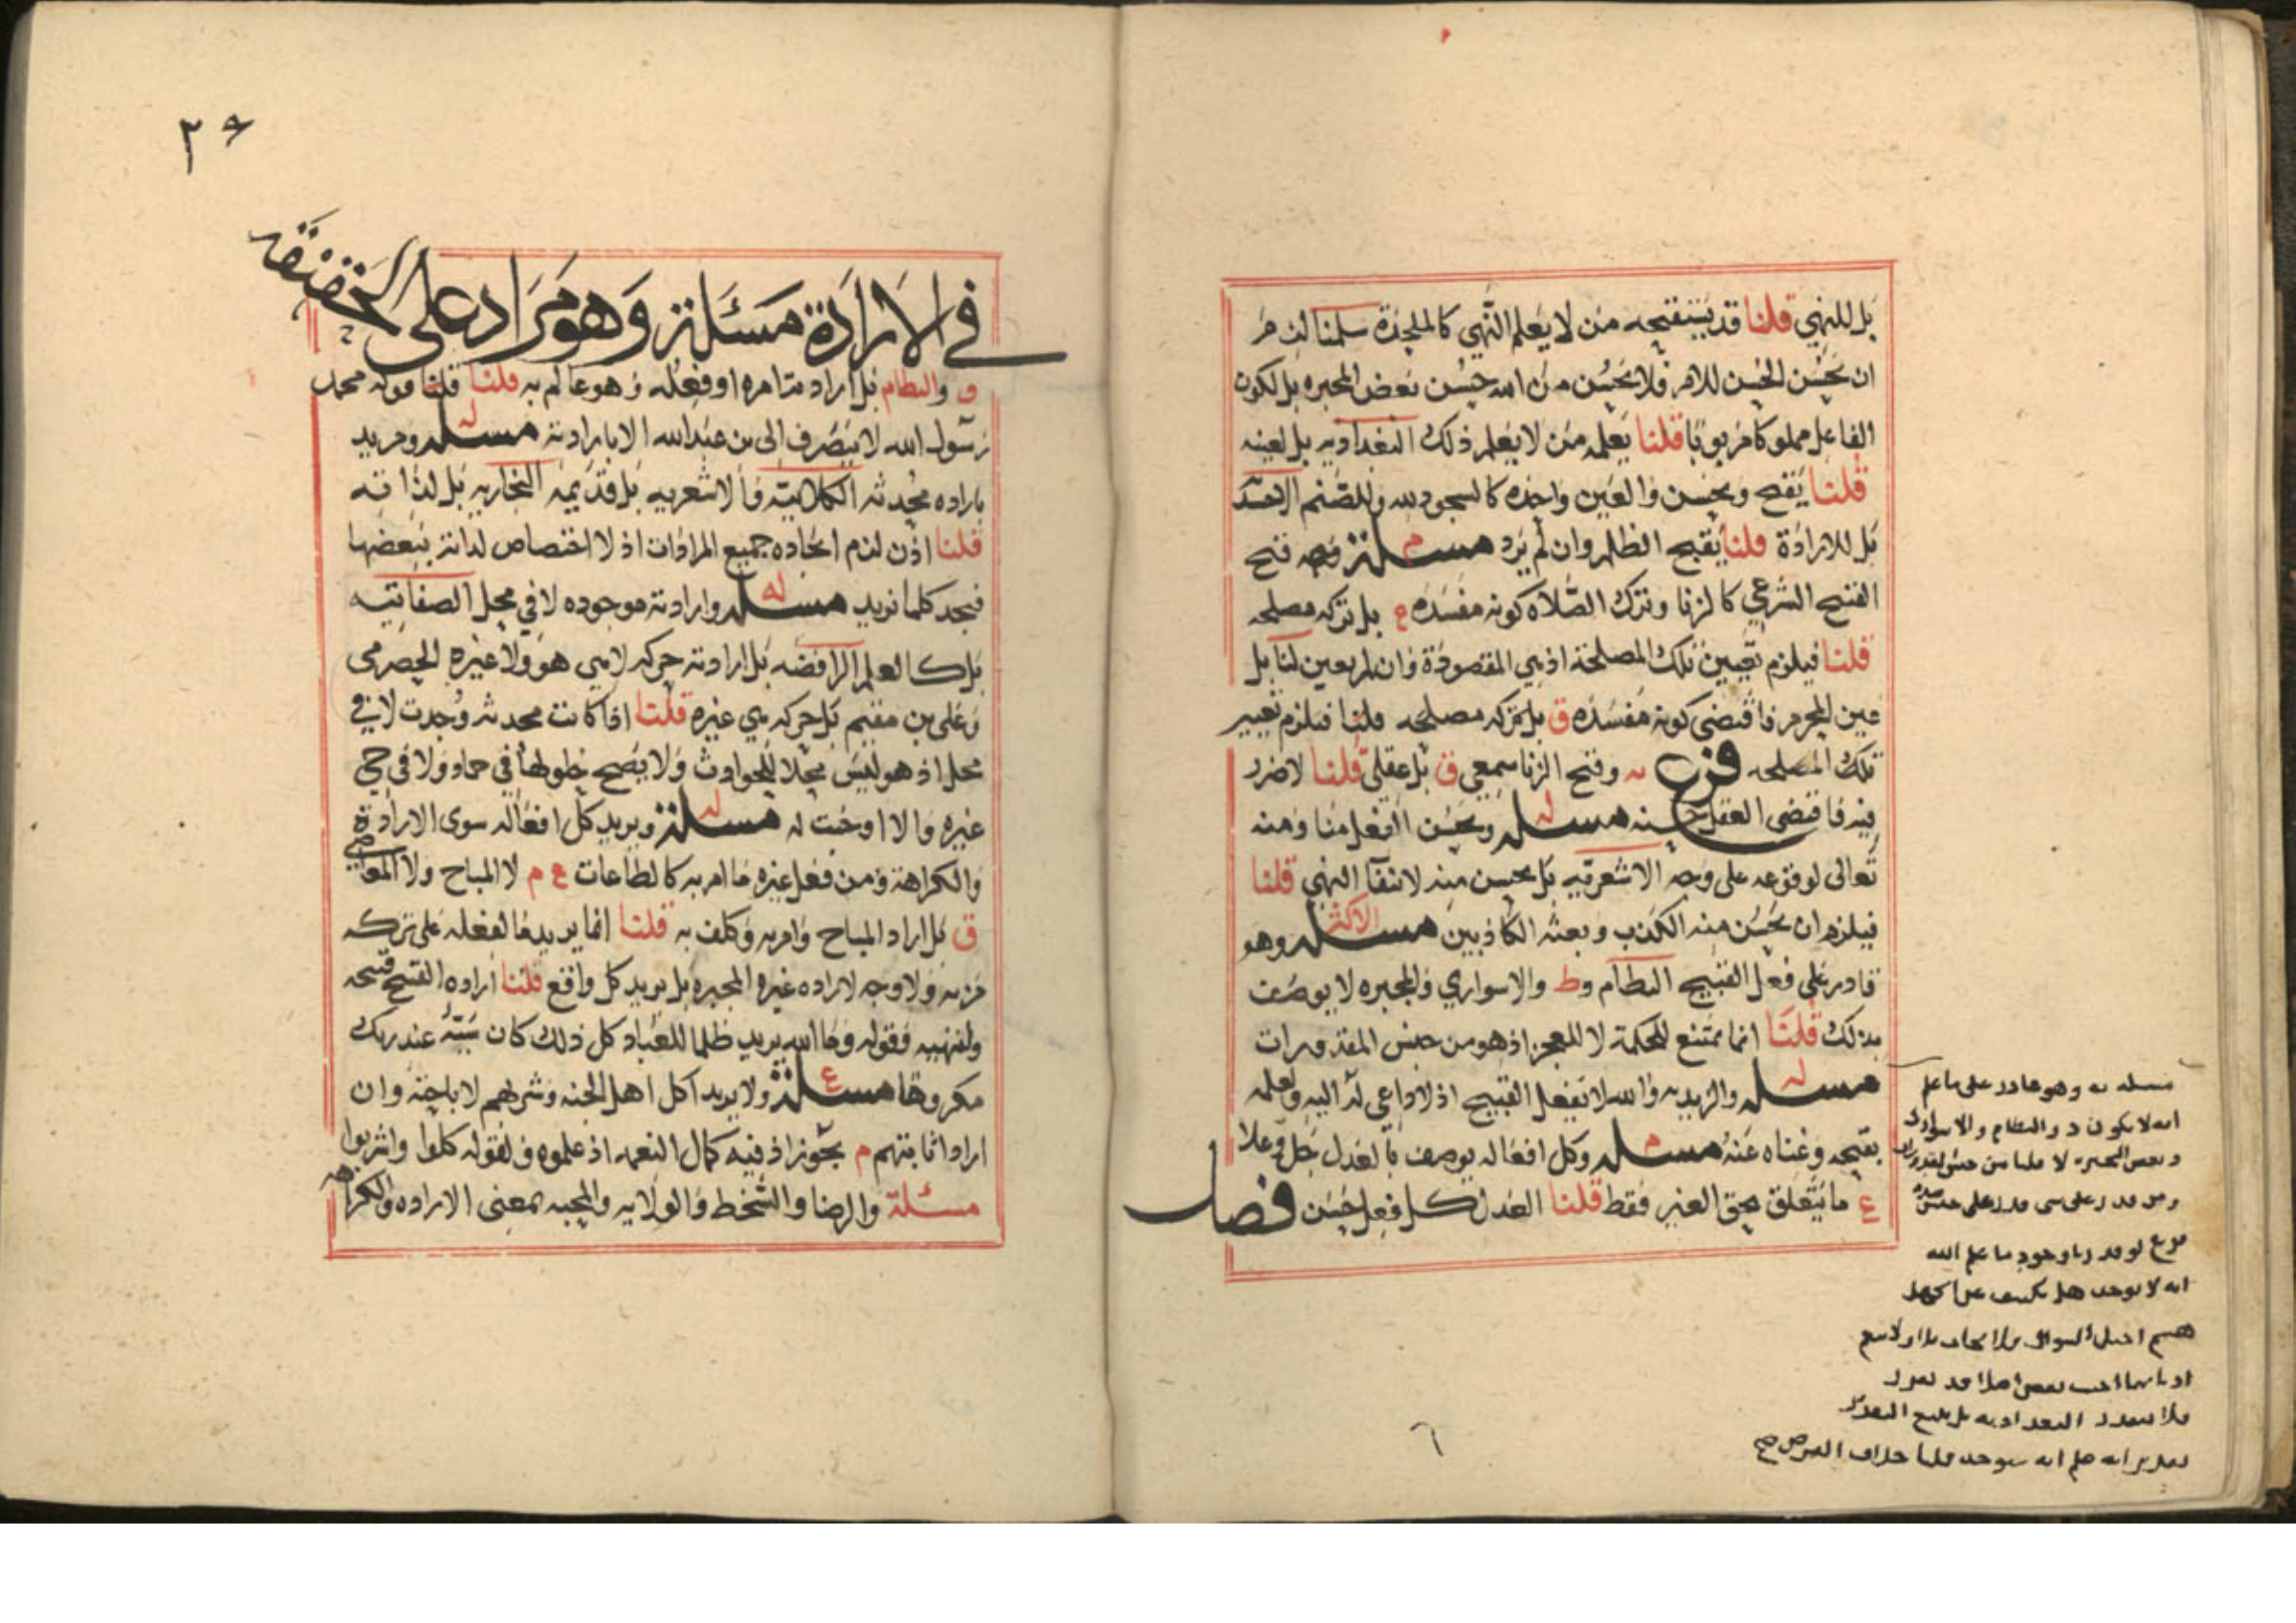 بل للنهي قلنا قد يستقبحه من لا يعلم النهي كالملحدة سلمنا لزم
ان يحسن الحسن للامر فلا يحسن من الله حسن بعض المجبره بل لكون
الفاعل مملوكا مربوبا قلنا يعلمه من لا يعلم ذلك البغداديه بل لعينه
قلنا يقبح ويحسن والعين واحده كالسجود لله وللصنم الاخشد
بل للارادة قلنا يقبح الظلم وان لم يرد مسئلة م وجه قبح
القبح الشرعي كالزنا وترك الصلاه كونه مفسده ع بل تركه مصلحه
قلنا فيلزم تعيين تلك المصلحة اذ هي المقصودة وان لم يعين لنا بل
عين المحرم فاقتضى كونه مفسده ق بل تركه مصلحه قلنا فيلزم تعيير
تلك المصلحه فرع يه وقبح الزنا سمعي ق بل عقلي قلنا لا ضرر
فيه فاقتضى العقل حسنه مسئله له ويحسن الفعل منا ومنه
تعالى لوقوعه على وجه الاشعريه بل يحسن منه لانتفآ النهي قلنا
فيلزم ان يحسن منه الكذب وبعثه الكاذبين مسئله الاكثر وهو
قادر على فعل القبيح النظام وط والاسواري والمجبره لا يوصف
بذلك قلنا انما يمتنع للحكمة لا للعجز اذ هو من جنس المقدورات
مسئله له والزيديه والله لا يفعل القبيح اذ لا داعي له اليه ولعلمه
بقبحه وغناه عنه مسئله م وكل افعاله يوصف بالعدل جل وعلا
ع ما يتعلق بحق الغير فقط قلنا العدل كل فعل حسن فصل
مسله يه وهو قادر على ما علم
انه لا يكون د والنظام والاسوارى
وبعض المجبره لا قلنا من جنس المقدورات
ومن قدر على شى قدر على جنسه
فرع لو قدرنا وجود ما علم الله
انه لا يوجد هل يكشف عن الجهل
فى الارادة مسئلة وهو مراد على الحقيقه
ق والنظام بل اراد متامره او فعله وهو عالم به قلنا قلنا قوله محمد
رسول الله لا ينصرف الى بن عبدالله الا بارادته مسئله له ومريد
باراده محدثه الكلابيه والاشعريه بل قديمه النجاريه بل لذاته
قلنا اذن لزم ايجاده جميع المرادات اذ لا اختصاص لذاته ببعضها
فيجد كلما نريد مسئله له وارادته موجوده لا في محل الصفاتيه
بل كالعلم الرافضه بل ارادته حركه لا هي هو ولا غيره الحضرمى
وعلى بن مقيم بل حركه هي غيره قلنا اذا كانت محدثه وجدت لا في
محل اذ هو ليس محلا للحوادث ولا يصح حلولها في جماد ولا في حي
غيره والا اوجبت له مسئلة له ويريد كل افعاله سوى الارادة
والكراهة ومن فعل غيره ما امر به كالطاعات ع م لا المباح ولا المعاصي
ق بل اراد المباح وامر به وكلف به قلنا انما يريد ما لفعله على تركه
مزيه ولا وجه لاراده غيره المجبره بل يريد كل واقع قلنا اراده القبيح قبيحه
ولنهيه وقوله وما الله يريد ظلما للعباد كل ذلك كان سيئه عند ربك
مكروها مسئلة ع ولا يريد اكل اهل الجنه وشربهم لاباحته وان
اراد اثابتهم م يجوز اذ فيه كمال النعمه اذ علموه ولقوله كلوا واشربوا
مسئلة والرضا والسخط والولايه والمحبه بمعنى الاراده والكراهه